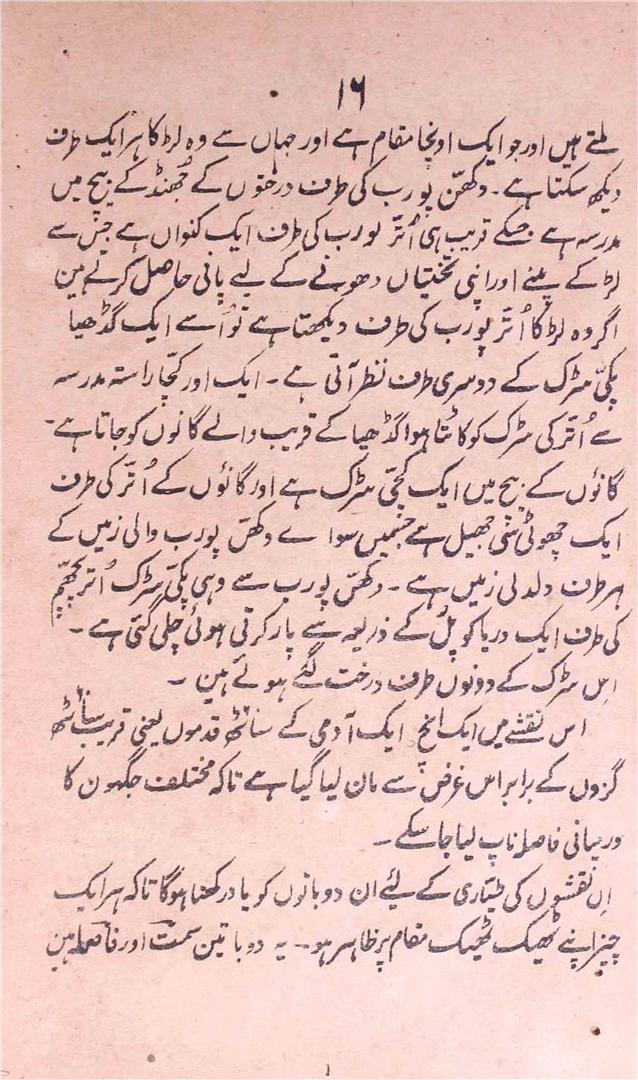 ۱۶
ملتے ہیں اور جو ایک اونچا مقام ہے اور جہاں سے وہ لڑکا ہر ایک طرف
دیکھ سکتا ہے۔ دکھّن پورب کی طرف درختوں کے جُھنڈ کے بیچ میں
مدرسہ ہے جسکے قریب ہی اُتّر پورب کی طرف ایک کنواں ہے جس سے
لڑکے پینے اور اپنی تختیاں دھونے کے لیے پانی حاصل کرتے ہین
اگر وہ لڑکا اُتّر پورب کی طرف دیکھتا ہے تو اُسے ایک گڈھیا
پکّی سڑک کے دوسری طرف نظر آتی ہے۔ ایک اور کچّا راستہ مدرسہ
سے اُتّر کی سڑک کو کاٹتا ہوا گڈھیا کے قریب والے گانوں کو جاتا ہے۔
گانؤں کے بیچ میں ایک کچّی سڑک ہے اور گانؤں کے اُتّر کی طرف
ایک چھوٹی سی جھیل ہے جسمیں سواے دکھّن پورب والی زمیں کے
ہر طرف دلدلی زمیں ہے۔ دکھّن پورب سے وہی پکّی سڑک اُتر پچھّم
کی طرف ایک دریا کو پُل کے ذریعہ سے پار کرتی ہوئی چلی گئی ہے۔
اِس سڑک کے دونوں طرف درخت لگے ہوئے ہین۔
اس نقشے میں ایک انچ ایک آدمی کے ساٹھ قدموں یعنی قریب ساٹھ
گزوں کے برابر اس غرض سے مان لیا گیا ہے تاکہ مختلف جگہون کا
درمیانی فاصلہ ناپ لیا جا سکے۔
اِن نقشوں کی طیّاری کے لیٔے ان دو باتوں کو یاد رکھنا ہوگا تاکہ ہر ایک
چیز اپنے ٹھیک ٹھیک مقام پر ظاہر ہو۔ یہ دو باتین سمت اور فاصلہ ہین